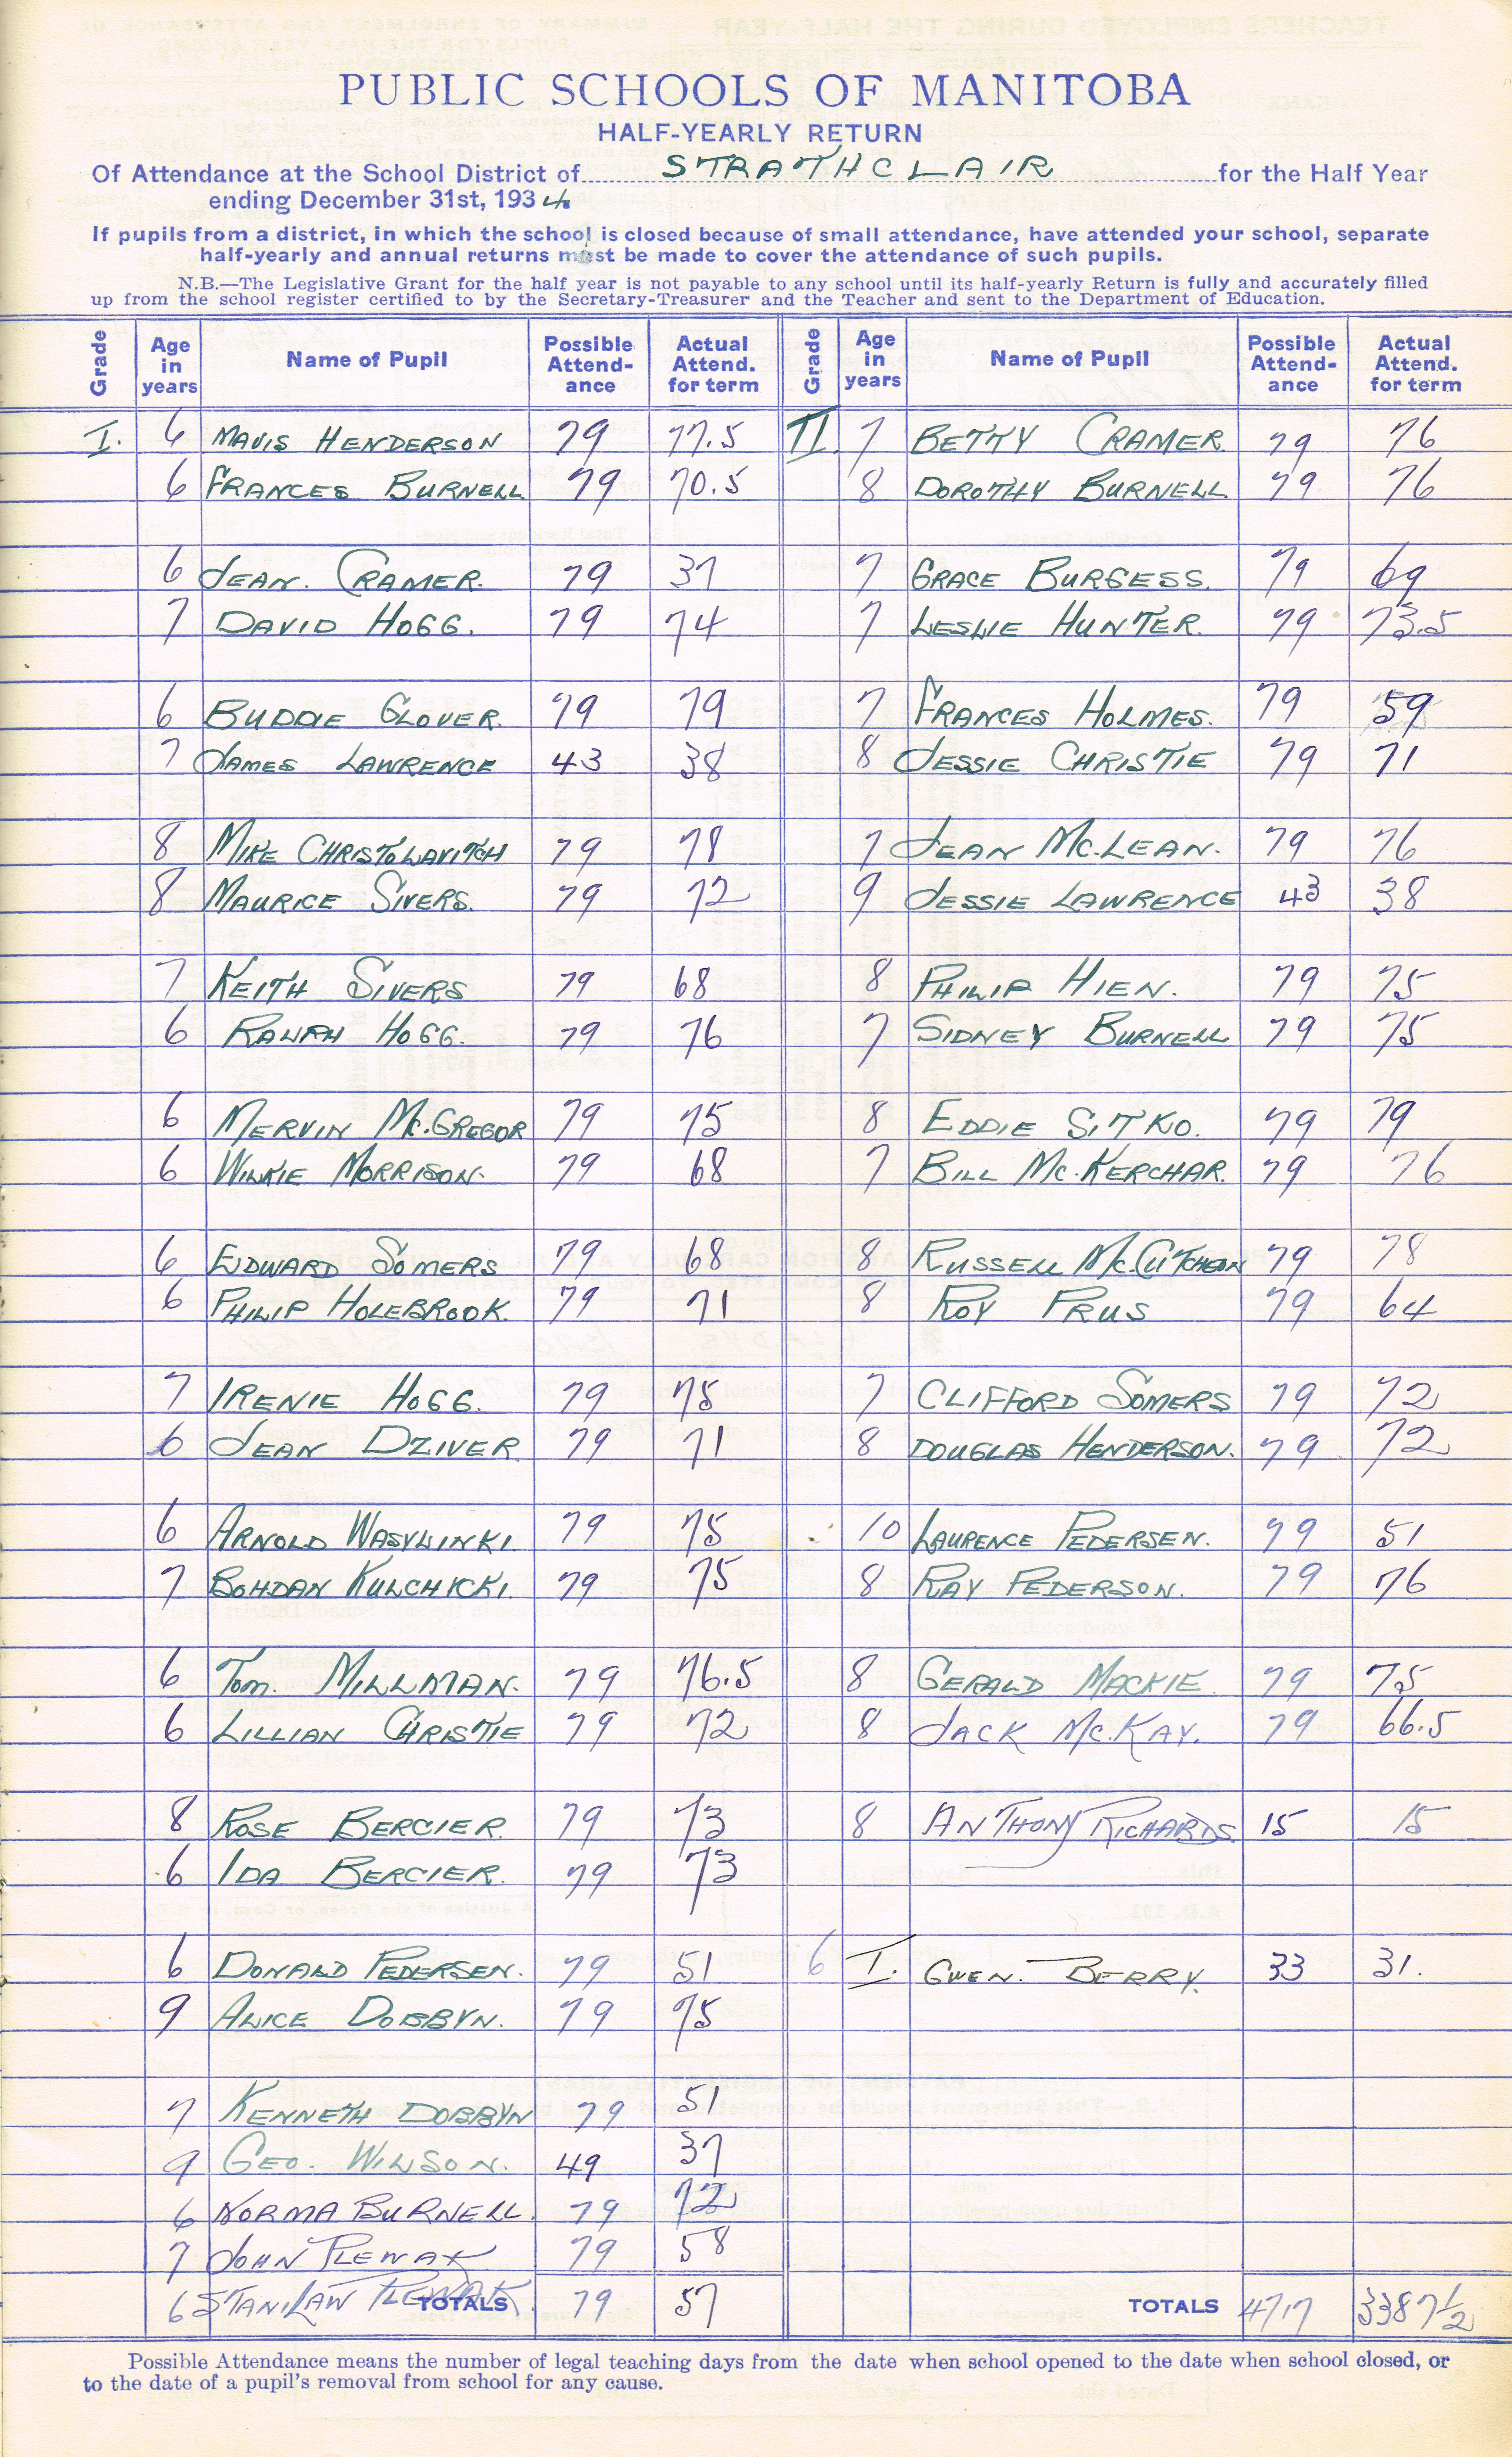 PUBLIC SCHOOLS OF MANITOBA
HALF-YEARLY RETURN
Of Attendance at the School District of STRATHCLAIR for the Half Year
ending December 31st, 1934
If pupils from a district, in which the school is closed because of small attendance, have attended your school, separate
half-yearly and annual returns must be made to cover the attendance of such pupils.
N.B.—The Legislative Grant for the half year is not payable to any school until its half-yearly Return is fully and accurately filled
up from the school register certified to by the Secretary-Treasurer and the Teacher and sent to the Department of Education.
Grade Age in years Name of Pupil Possible Attend-ance Actual Attend. for term Grade Age in years Name of Pupil Possible Attend-ance Actual Attend. for term
I. 6 MAVIS HENDERSON 79 77.5 II. 7 BETTY CRAMER. 79 76
6 FRANCES BURNELL 79 70.5 8 DOROTHY BURNELL 79 76
6 JEAN. CRAMER. 79 37 7 GRACE BURGESS. 79 69
7 DAVID HOGG. 79 74 7 LESLIE HUNTER. 79 73.5
6 BUDDIE GLOVER. 79 79 7 FRANCES HOLMES. 79 59
7 JAMES LAWRENCE 43 38 8 JESSIE CHRISTIE 79 71
8 MIKE CHRISTOLAVITCH 79 78 7 JEAN MC.LEAN. 79 76
8 MAURICE SIVERS. 79 72 9 JESSIE LAWRENCE 43 38
7 KEITH SIVERS 79 68 8 PHILIP HIEN. 79 75
6 RALPH HOGG. 79 76 7 SIDNEY BURNELL 79 75
6 MERVIN MC.GREGOR 79 75 8 EDDIE SITKO. 79 79
6 WILKIE MORRISON. 79 68 7 BILL MC.KERCHAR. 79 76
6 EDWARD SOMERS 79 68 8 RUSSELL MC.CUTCHEON 79 78
6 PHILIP HOLEBROOK. 79 71 8 ROY PRUS 79 64
7 IRENIE HOGG. 79 75 7 CLIFFORD SOMERS 79 72
6 JEAN DZIVER. 79 71 8 DOUGLAS HENDERSON. 79 72
6 ARNOLD WASYLINKI. 79 75 10 LAURENCE PEDERSEN. 79 51
7 BOHDAN KULCHICKI. 79 75 8 RAY PEDERSON. 79 76
6 TOM. MILLMAN. 79 76.5 8 GERALD MACKIE. 79 75
6 LILLIAN CHRISTIE 79 72 8 JACK MC.KAY. 79 66.5
8 ROSE BERCIER. 79 73 8 ANTHONY RICHARDS. 15 15
6 IDA BERCIER. 79 73
6 DONALD PEDERSEN. 79 51 6 I. GWEN. BERRY. 33 31.
9 ALICE DOBBYN. 79 75
7 KENNETH DOBBYN 79 51
9 GEO. WILSON. 49 37
6 NORMA BURNELL. 79 72
7 JOHN PLEWAK 79 58
6 STANILAW PLEWAK TOTALS 79 57 TOTALS 4717 3387½
Possible Attendance means the number of legal teaching days from the date when school opened to the date when school closed, or
to the date of a pupil's removal from school for any cause.